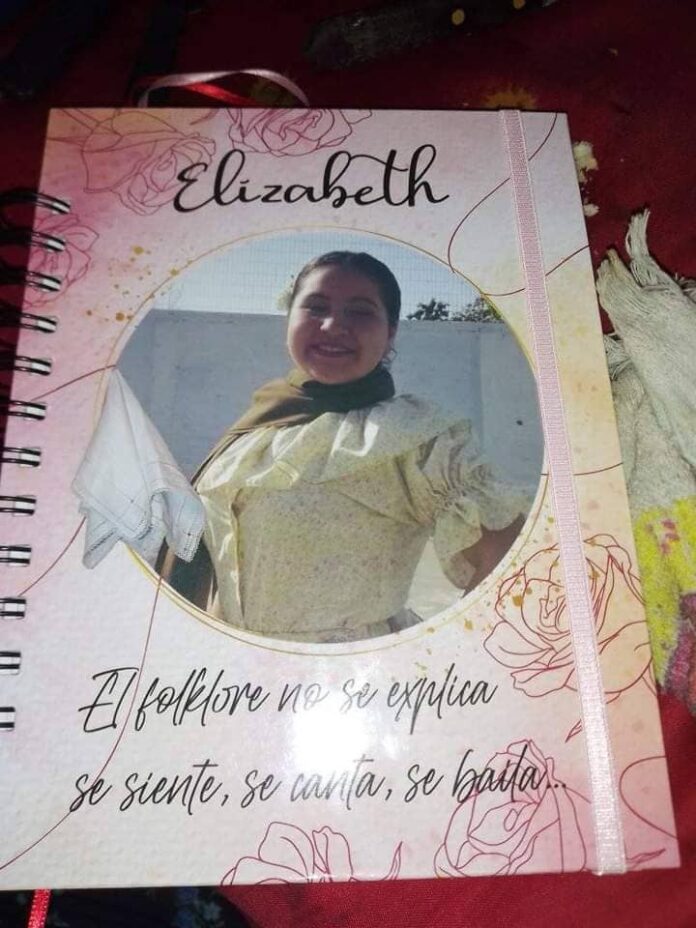 Elizabeth
El folklore no se explica
se siente, se canta, se baila...